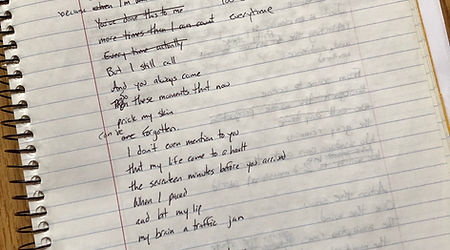 because when I'm
You've done this to me
more times than I can count everytime
Every time actually
But I still call
And you always come
these moments that now
prick my skin
can be are forgotten.
I don't even mention to you
that my life came to a hault
the seventeen minutes before you arrived
When I paced
and bit my lip
my brain a traffic jam